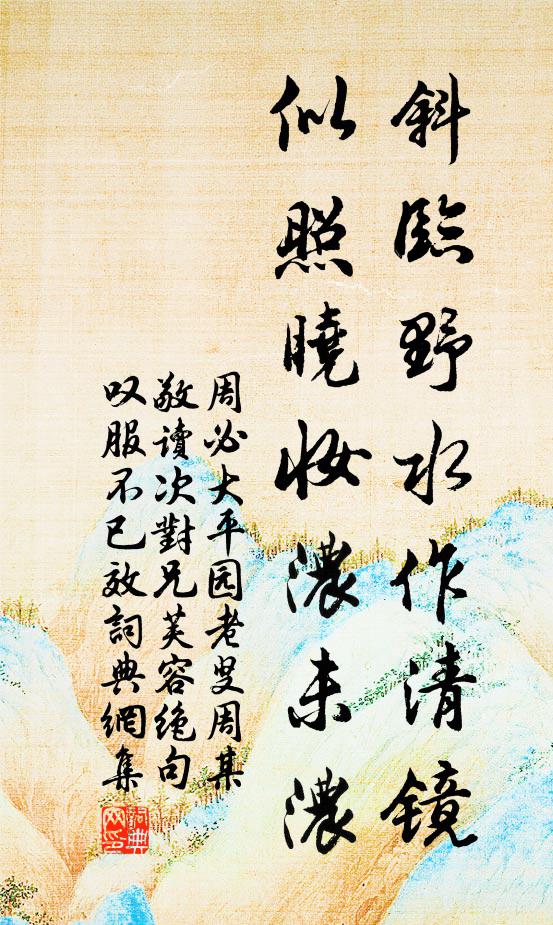 斜臨野水作清镜
似照曉妝濃未濃
周必大平园老叟周某
敬讀次對兄芙容绝句
叹服不已效詞典網集
詞典
网印